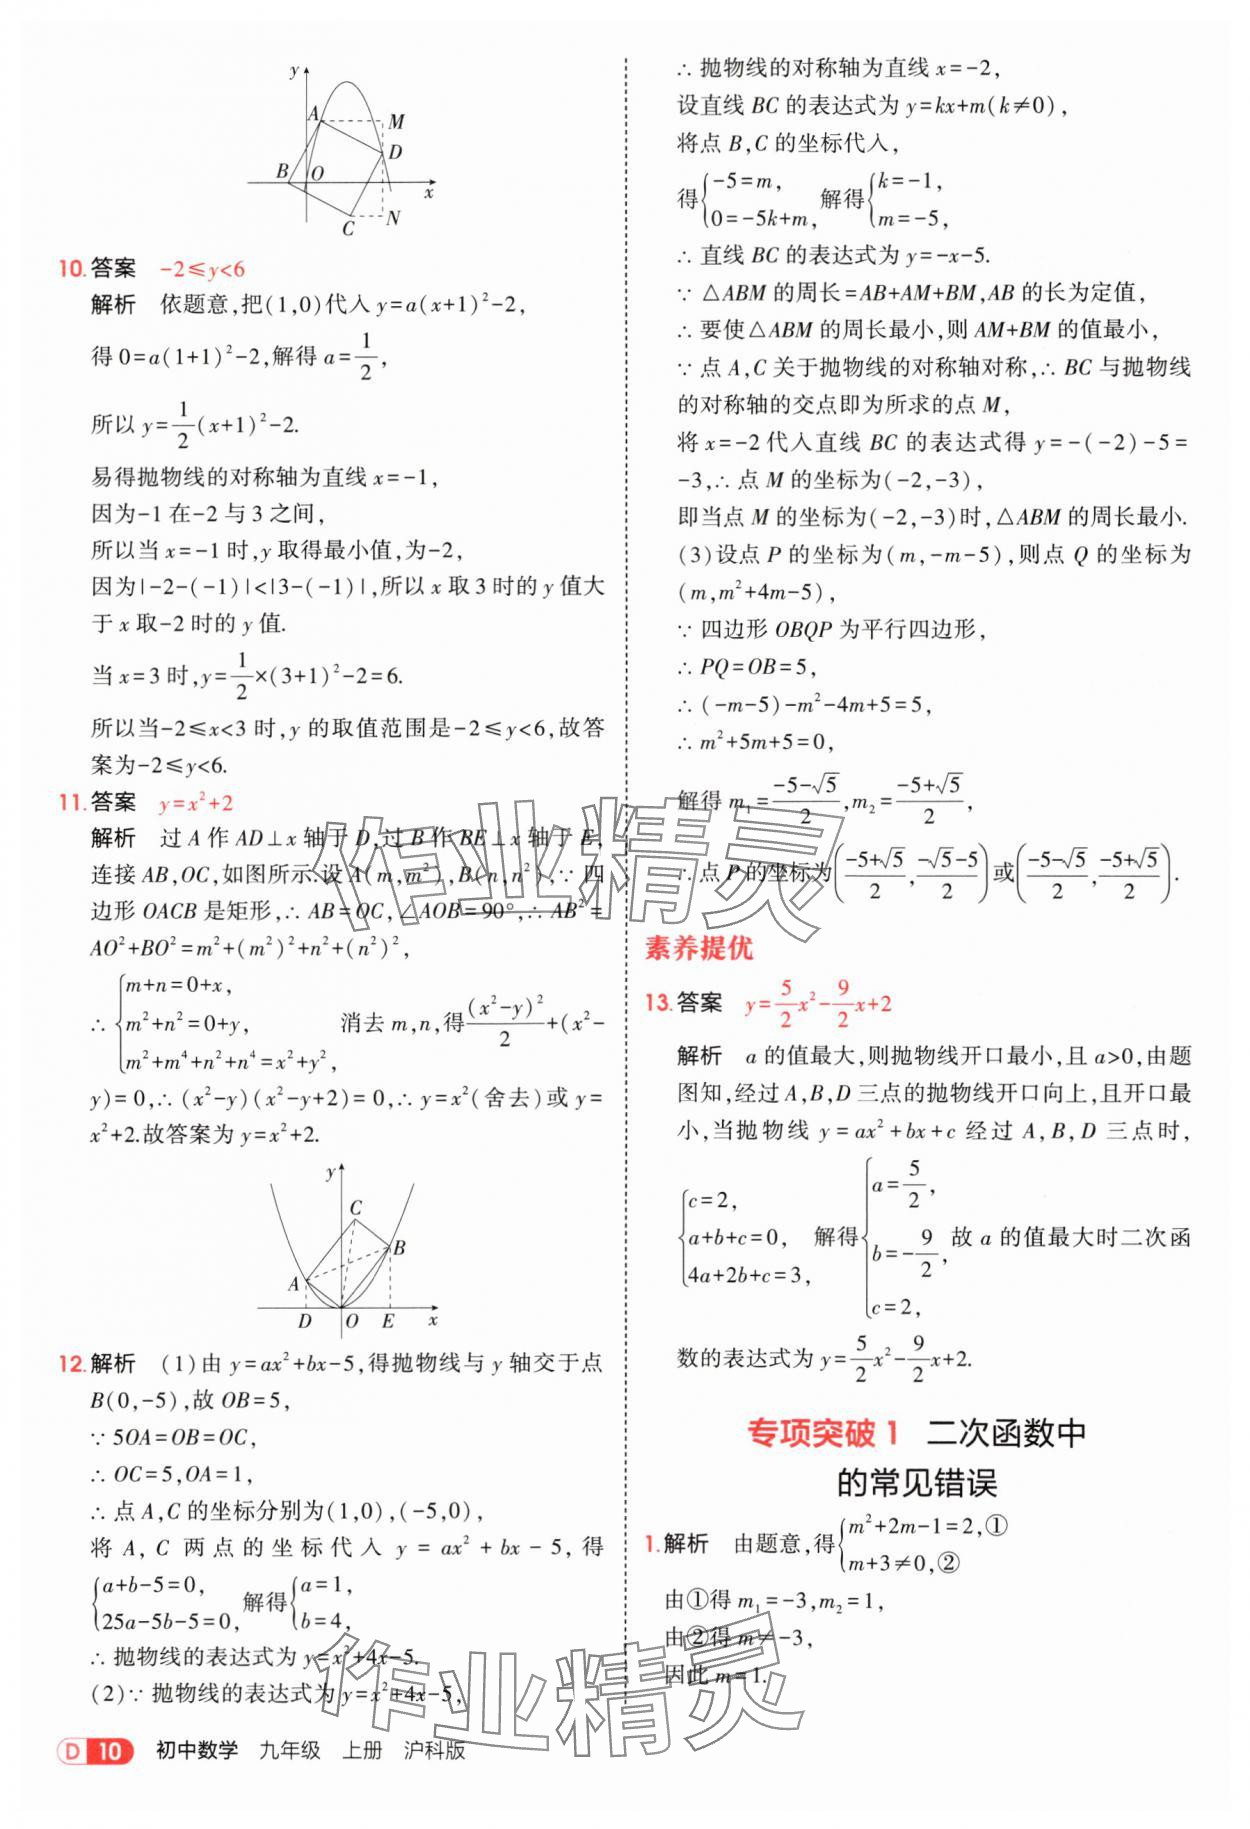 y
A
M
D
B
O
x
C
N
10.答案 -2≤y<6
解析 依题意,把(1,0)代入y=a(x+1)²-2,
得0=a(1+1)²-2,解得a=1/2,
所以y=1/2(x+1)²-2.
易得抛物线的对称轴为直线x=-1,
因为-1在-2与3之间,
所以当x=-1时,y取得最小值,为-2,
因为|-2-(-1)|<|3-(-1)|,所以x取3时的y值大
于x取-2时的y值.
当x=3时,y=1/2×(3+1)²-2=6.
所以当-2≤x<3时,y的取值范围是-2≤y<6,故答
案为-2≤y<6.
11.答案 y=x²+2
解析 过A作AD⊥x轴于D,过B作BE⊥x轴于E,
连接AB,OC,如图所示.设A(m,m²),B(n,n²),∵四
边形OACB是矩形,∴AB=OC,∠AOB=90°,∴AB²=
AO²+BO²=m²+(m²)²+n²+(n²)²,
∴{m+n=0+x,
m²+n²=0+y,
m²+m⁴+n²+n⁴=x²+y², 消去m,n,得(x²-y)²/2+(x²-
y)=0,∴(x²-y)(x²-y+2)=0,∴y=x²(舍去)或y=
x²+2.故答案为y=x²+2.
y
C
B
A
D
O
E
x
12.解析 (1)由y=ax²+bx-5,得抛物线与y轴交于点
B(0,-5),故OB=5,
∵5OA=OB=OC,
∴OC=5,OA=1,
∴点A,C的坐标分别为(1,0),(-5,0),
将A,C两点的坐标代入y=ax²+bx-5,得
{a+b-5=0,
25a-5b-5=0, 解得{a=1,
b=4,
∴抛物线的表达式为y=x²+4x-5.
(2)∵抛物线的表达式为y=x²+4x-5,
∴抛物线的对称轴为直线x=-2,
设直线BC的表达式为y=kx+m(k≠0),
将点B,C的坐标代入,
得{-5=m,
0=-5k+m, 解得{k=-1,
m=-5,
∴直线BC的表达式为y=-x-5.
∵△ABM的周长=AB+AM+BM,AB的长为定值,
∴要使△ABM的周长最小,则AM+BM的值最小,
∵点A,C关于抛物线的对称轴对称,∴BC与抛物线
的对称轴的交点即为所求的点M,
将x=-2代入直线BC的表达式得y=-(-2)-5=
-3,∴点M的坐标为(-2,-3),
即当点M的坐标为(-2,-3)时,△ABM的周长最小.
(3)设点P的坐标为(m,-m-5),则点Q的坐标为
(m,m²+4m-5),
∵四边形OBQP为平行四边形,
∴PQ=OB=5,
∴(-m-5)-m²-4m+5=5,
∴m²+5m+5=0,
解得m₁=(-5-√5)/2,m₂=(-5+√5)/2,
∴点P的坐标为((-5+√5)/2,(-√5-5)/2)或((-5-√5)/2,(-5+√5)/2).
素养提优
13.答案 y=5/2x²-9/2x+2
解析 a的值最大,则抛物线开口最小,且a>0,由题
图知,经过A,B,D三点的抛物线开口向上,且开口最
小,当抛物线y=ax²+bx+c经过A,B,D三点时,
{c=2,
a+b+c=0,
4a+2b+c=3, 解得{a=5/2,
b=-9/2,
c=2, 故a的值最大时二次函
数的表达式为y=5/2x²-9/2x+2.
专项突破1 二次函数中
的常见错误
1.解析 由题意,得{m²+2m-1=2,①
m+3≠0,②
由①得m₁=-3,m₂=1,
由②得m≠-3,
因此m=1.
作业精灵
作业精灵
D 10 初中数学 九年级 上册 沪科版